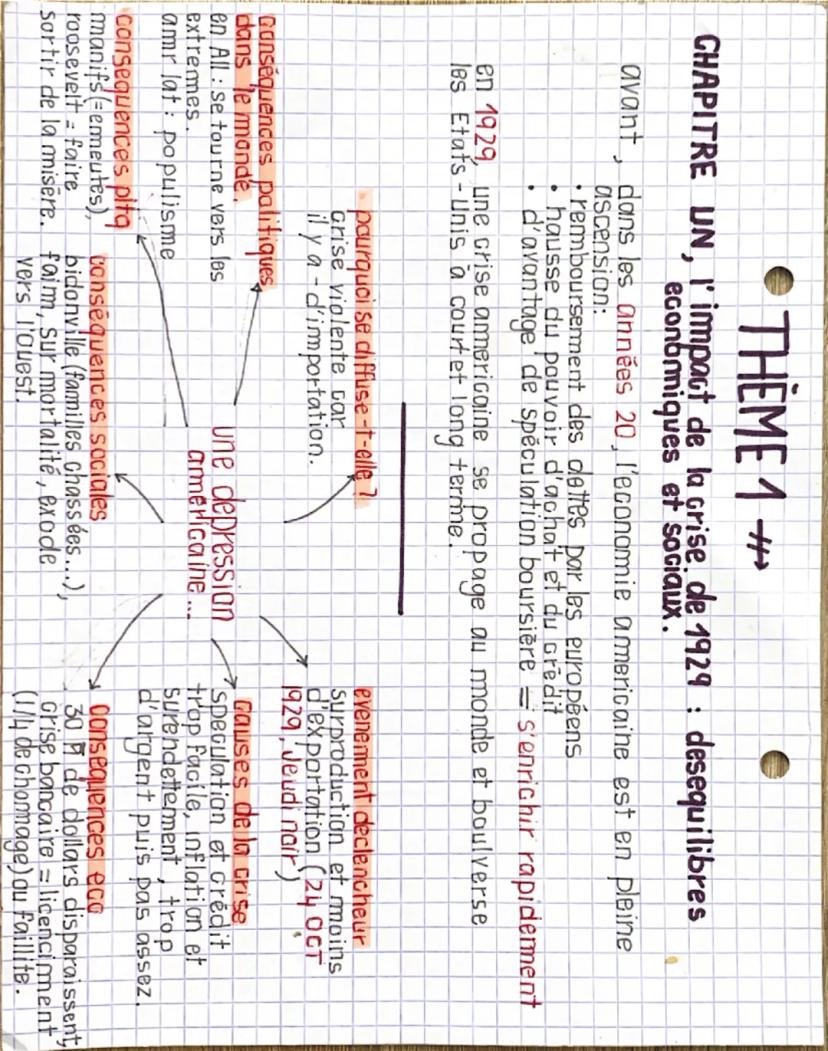 THÈME 1
CHAPITRE UN, l'impact de la crise de 1929 : desequilibres
economiques et sociaux.
avant, dans les années 20, l'economie americaine est en pleine
ascension:
• remboursement des dettes par les européens
• hausse du pouvoir d'achat et du crédit
• d'avantage de spéculation boursière = s'enrichir rapidement
en 1929, une crise americaine se propage au monde et boulverse
les Etats-Unis à court et long terme.
pourquoi se diffuse-t-elle ?
crise violente car
il y a - d'importation.
evenement declencheur
surproduction et moins
d'exportation (24 OCT
1929, Jeudi noir)
conséquences politiques
dans le monde.
en All : se tourne vers les
extremes.
amr lat : populisme
une depression
americaine...
causes de la crise
speculation et crédit
trop facile, inflation et
surendettement, trop
d'argent puis pas assez.
consequences pltq
manifs (= emeutes),
roosevelt = faire
sortir de la misère.
conséquences sociales
bidonville (familles chassées...),
faim, sur mortalité, exode
vers l'ouest.
consequences eco
30 de dollars disparaissent,
crise bancaire = licenciment
(1/4 de chomage) ou faillite.